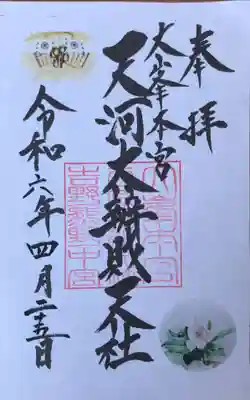 奉拝
大峯本宮
天河大辨財天社
令和六年四月二十五日
吉野熊野中宮